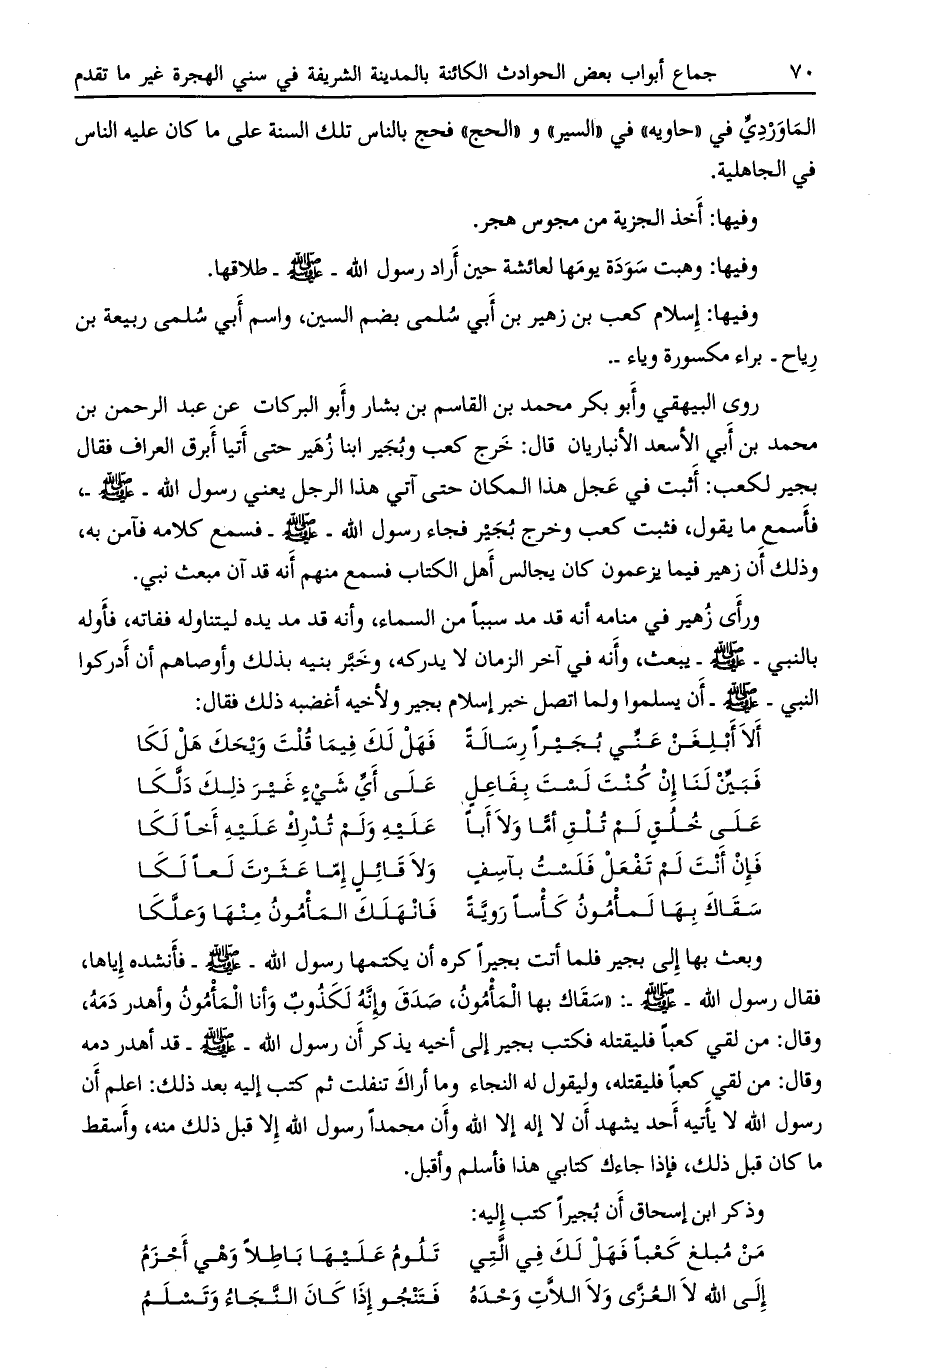 ٧٠ جماع أبواب بعض الحوادث الكائنة بالمدينة الشريفة في سني الهجرة غير ما تقدم
المَاوَرْدِيِّ في «حاويه» في «السير» و «الحج» فحج بالناس تلك السنة على ما كان عليه الناس
في الجاهلية.
وفيها: أَخذ الجزية من مجوس هجر.
وفيها: وهبت سَوَدَة يومَها لعائشة حين أَراد رسول الله ـ ﷺ ـ طلاقها.
وفيها: إسلام كعب بن زهير بن أَبي سُلمى بضم السين، واسم أَبي سُلمى ربيعة بن
رِياح ـ براء مكسورة وياء ـ.
روى البيهقي وأَبو بكر محمد بن القاسم بن بشار وأَبو البركات عن عبد الرحمن بن
محمد بن أَبي الأسعد الأنباريان قال: خَرج كعب وبُجَير ابنا زُهَير حتى أَتيا أَبرق العراف فقال
بجير لكعب: أَثبت في عَجل هذا المكان حتى آتي هذا الرجل يعني رسول الله ـ ﷺ ـ،
فأَسمع ما يقول، فثبت كعب وخرج بُجَيْر فجاء رسول الله ـ ﷺ ـ فسمع كلامه فآمن به،
وذلك أَن زهير فيما يزعمون كان يجالس أَهل الكتاب فسمع منهم أَنه قد آن مبعث نبي.
ورأَى زُهير في منامه أنه قد مد سبباً من السماء، وأنه قد مد يده ليتناوله ففاته، فأَوله
بالنبي ـ ﷺ ـ يبعث، وأَنه في آخر الزمان لا يدركه، وخَبَّر بنيه بذلك وأوصاهم أن أَدركوا
النبي ـ ﷺ ـ أَن يسلموا ولما اتصل خبر إسلام بجير ولأخيه أغضبه ذلك فقال:
أَلاَ أَبْلِغَنْ عَنِّي بُجَيْراً رِسَالَةً فَهَلْ لَكَ فِيمَا قُلْتَ وَيْحَكَ هَلْ لَكَا
فَبَيِّنْ لَنَا إِنْ كُنْتَ لَسْتَ بِفَاعِلٍ عَلَى أَيِّ شَيْءٍ غَيْرَ ذلِكَ دَلَّكَا
عَلَى خُلُقٍ لَمْ تُلْقِ أمًّا وَلاَ أَباً عَلَيْهِ وَلَمْ تُدْرِكْ عَلَيْهِ أَخاً لَكَا
فَإِنْ أَنْتَ لَمْ تَفْعَلْ فَلَسْتُ بآسِفٍ وَلاَ قَائِلٍ إِمَّا عَثَرْتَ لَعاً لَكَا
سَقَاكَ بِهَا لَمأْمُونُ كَأْساً رَوِيَّةً فَانْهَلَكَ المَأْمُونُ مِنْهَا وَعلَّكَا
وبعث بها إِلى بجير فلما أتت بجيراً كره أن يكتمها رسول الله ـ ﷺ ـ فأَنشده إِياها،
فقال رسول الله ـ ﷺ ـ: «سَقَاك بها الْمَأْمُونُ، صَدَقَ وإِنَّهُ لَكَذُوبٌ وَأنا الْمَأْمُونُ وأَهدر دَمَهُ،
وقال: من لقي كعباً فليقتله فكتب بجير إلى أخيه يذكر أن رسول الله ـ ﷺ ـ قد أهدر دمه
وقال: من لقي كعباً فليقتله، وليقول له النجاء وما أراكَ تنفلت ثم كتب إليه بعد ذلك: اعلم أَن
رسول الله لا يأَتيه أَحد يشهد أَن لا إله إلا الله وأَن محمداً رسول الله إِلا قبل ذلك منه، وأَسقط
ما كان قبل ذلك، فإذا جاءك كتابي هذا فأسلم وأقبل.
وذكر ابن إسحاق أَن بُجيراً كتب إِليه:
مَنْ مُبلغ كَعْباً فَهَلْ لَكَ فِي الَّتِي تَلُومُ عَلَيْهَا بَاطِلاً وَهْيِ أَحْزَمُ
إِلَى الله لاَ العُزَّى وَلاَ اللاَّتِ وَحْدَهُ فَتَنْجُو إِذَا كَانَ النَّجَاءُ وَتَسْلَمُ